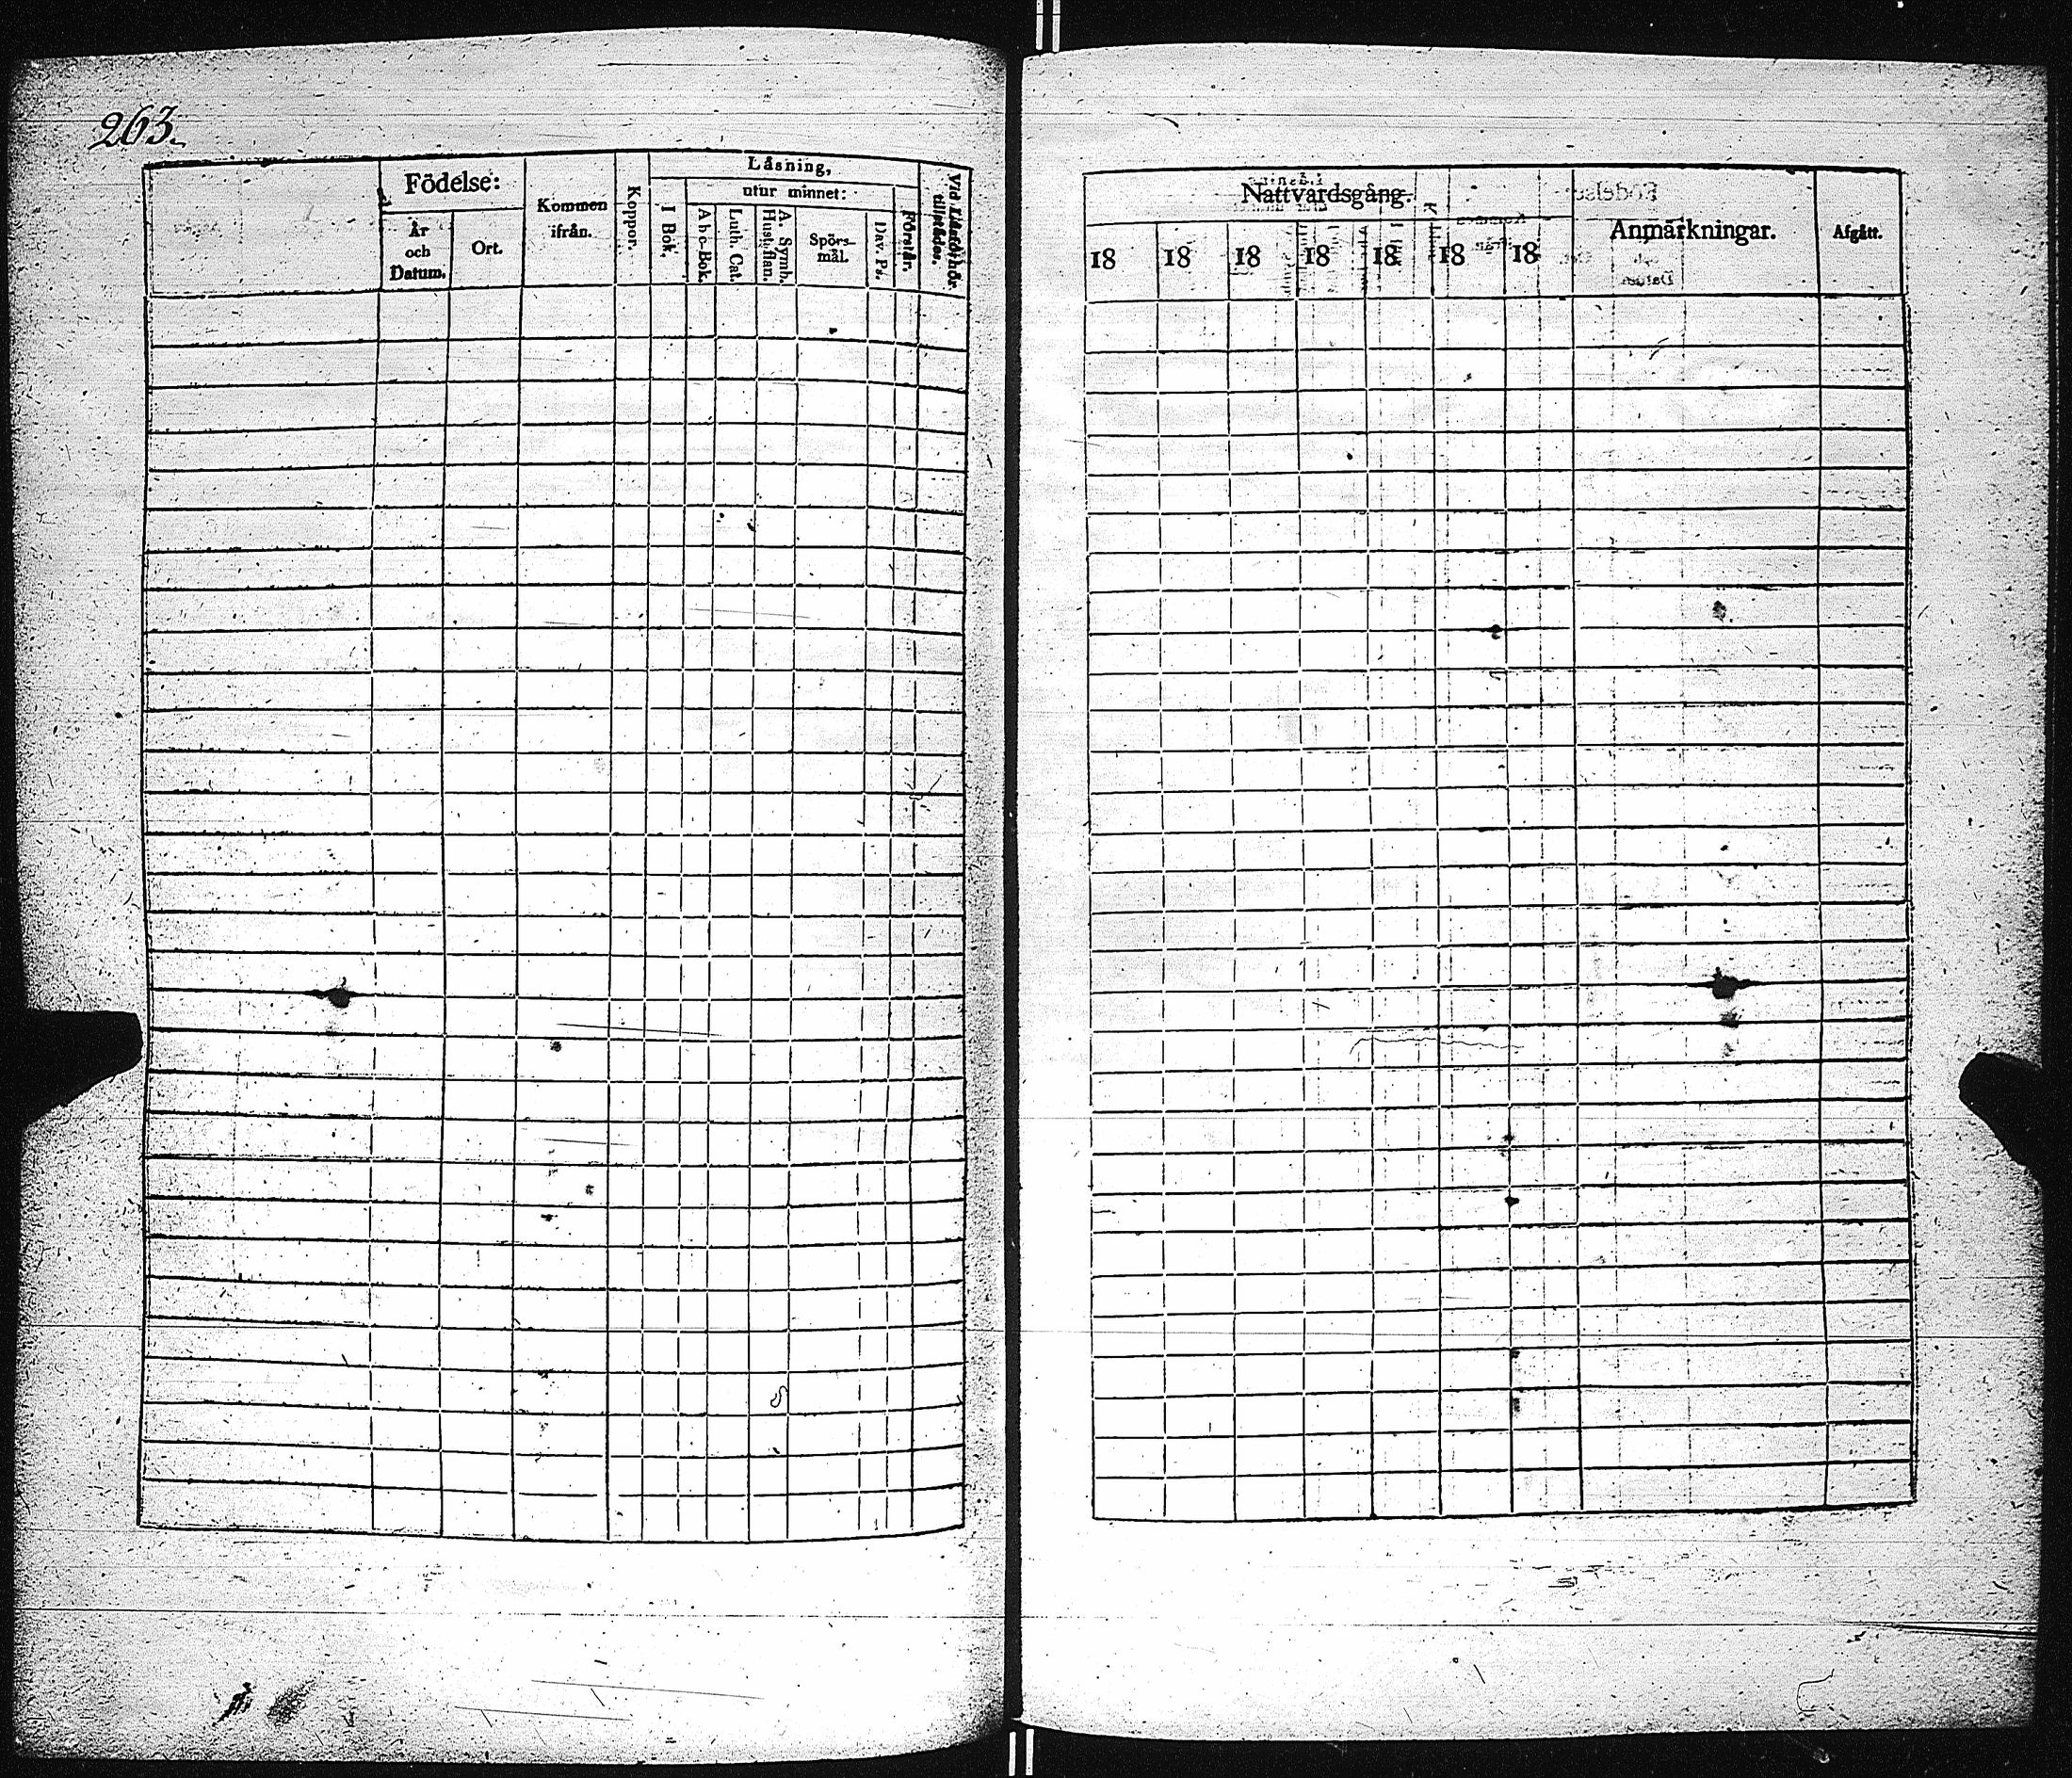 263.
Födelse:
År
och
Datum.
Ort.
Kommen
ifrån.
Koppor.
Läsning,
I Bok.
utur minnet:
Abc-Bok.
Luth. Cat.
A. Symb.
Hustaflan.
Spörs-
mål.
Dav. Ps.
Förstår.
Vid Läsförhör
tillstådes.
Nattvardsgång.
18 18 18 18 18 18 18
Anmärkningar.
Afgått.